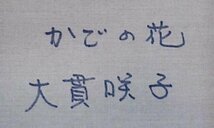 かどの花
大貫咲子